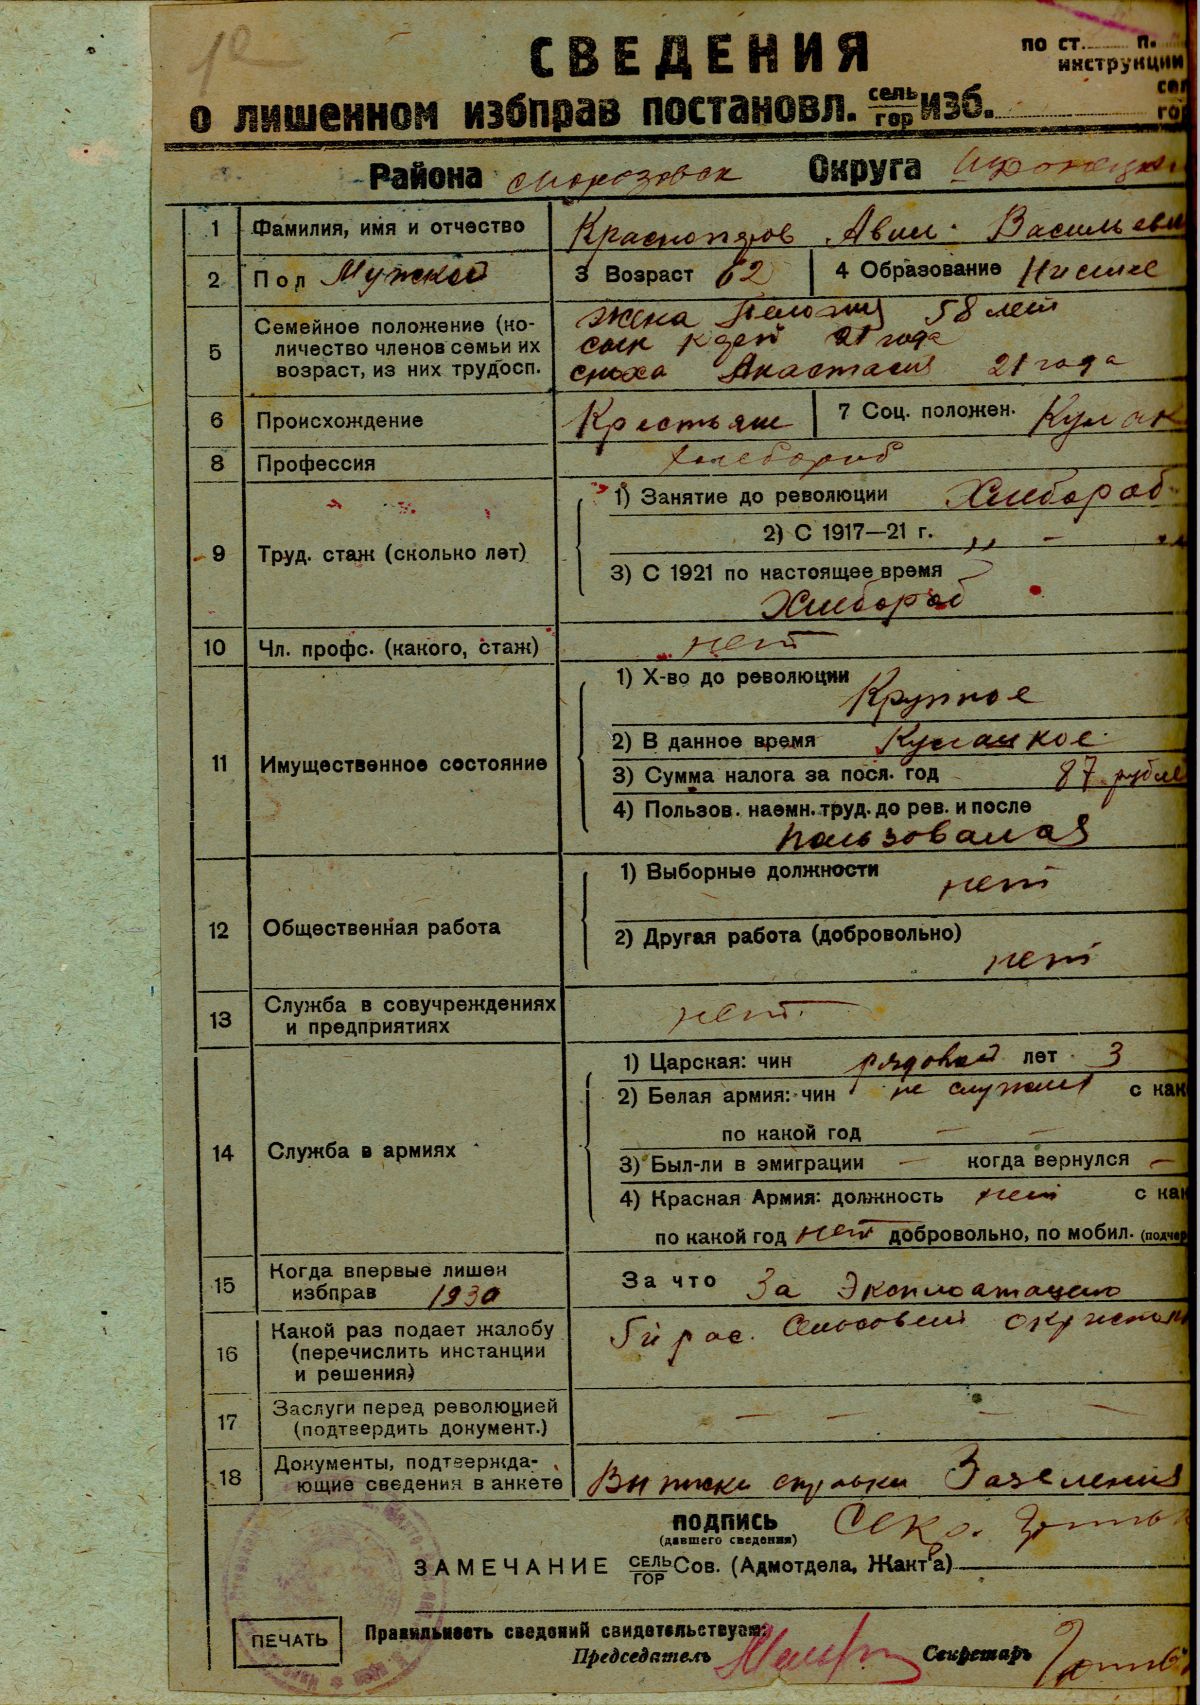 СВЕДЕНИЯ
по ст. п.
инструкции
о лишенном избправ постановл. сель гор изб.
Района Морозовск Округа
1 Фамилия, имя и отчество Васильеви
2 Пол Мужской 3 Возраст 62 4 Образование Нисшее
5 Семейное положение (ко- жена 58 лет
личество членов семьи их сын 21 года
возраст, из них трудосп. сноха Анастасия 21 года
6 Происхождение Крестьян 7 Соц. положен. Кулак
8 Профессия хлебороб
1) Занятие до революции Хлебороб
2) С 1917—21 г. „ -
9 Труд. стаж (сколько лет)
3) С 1921 по настоящее время
Хлебороб
10 Чл. профс. (какого, стаж) нет
1) Х-во до революции
Крупное
2) В данное время Кулацкое
11 Имущественное состояние
3) Сумма налога за посл. год 87 рубле
4) Пользов. наемн. труд. до рев. и после
пользовался
1) Выборные должности
нет
12 Общественная работа
2) Другая работа (добровольно)
нет
13 Служба в совучреждениях
и предприятиях нет
1) Царская: чин рядовой лет 3
2) Белая армия: чин не служил с как
по какой год — —
14 Служба в армиях
3) Был-ли в эмиграции — когда вернулся —
4) Красная Армия: должность нет с как
по какой год нет добровольно, по мобил. (подчер
15 Когда впервые лишен За что За Эксплоатацию
избправ 1930
16 Какой раз подает жалобу Сельсовет
(перечислить инстанции
и решения)
17 Заслуги перед революцией
(подтвердить документ.) — — — —
18 Документы, подтвержда-
ющие сведения в анкете Выписки справки Заявления
ПОДПИСЬ
(давшего сведения)
ЗАМЕЧАНИЕ СЕЛЬ ГОР Сов. (Адмотдела, Жакт'а)
Правильность сведений свидетельствуем:
ПЕЧАТЬ
Председатель Секретарь